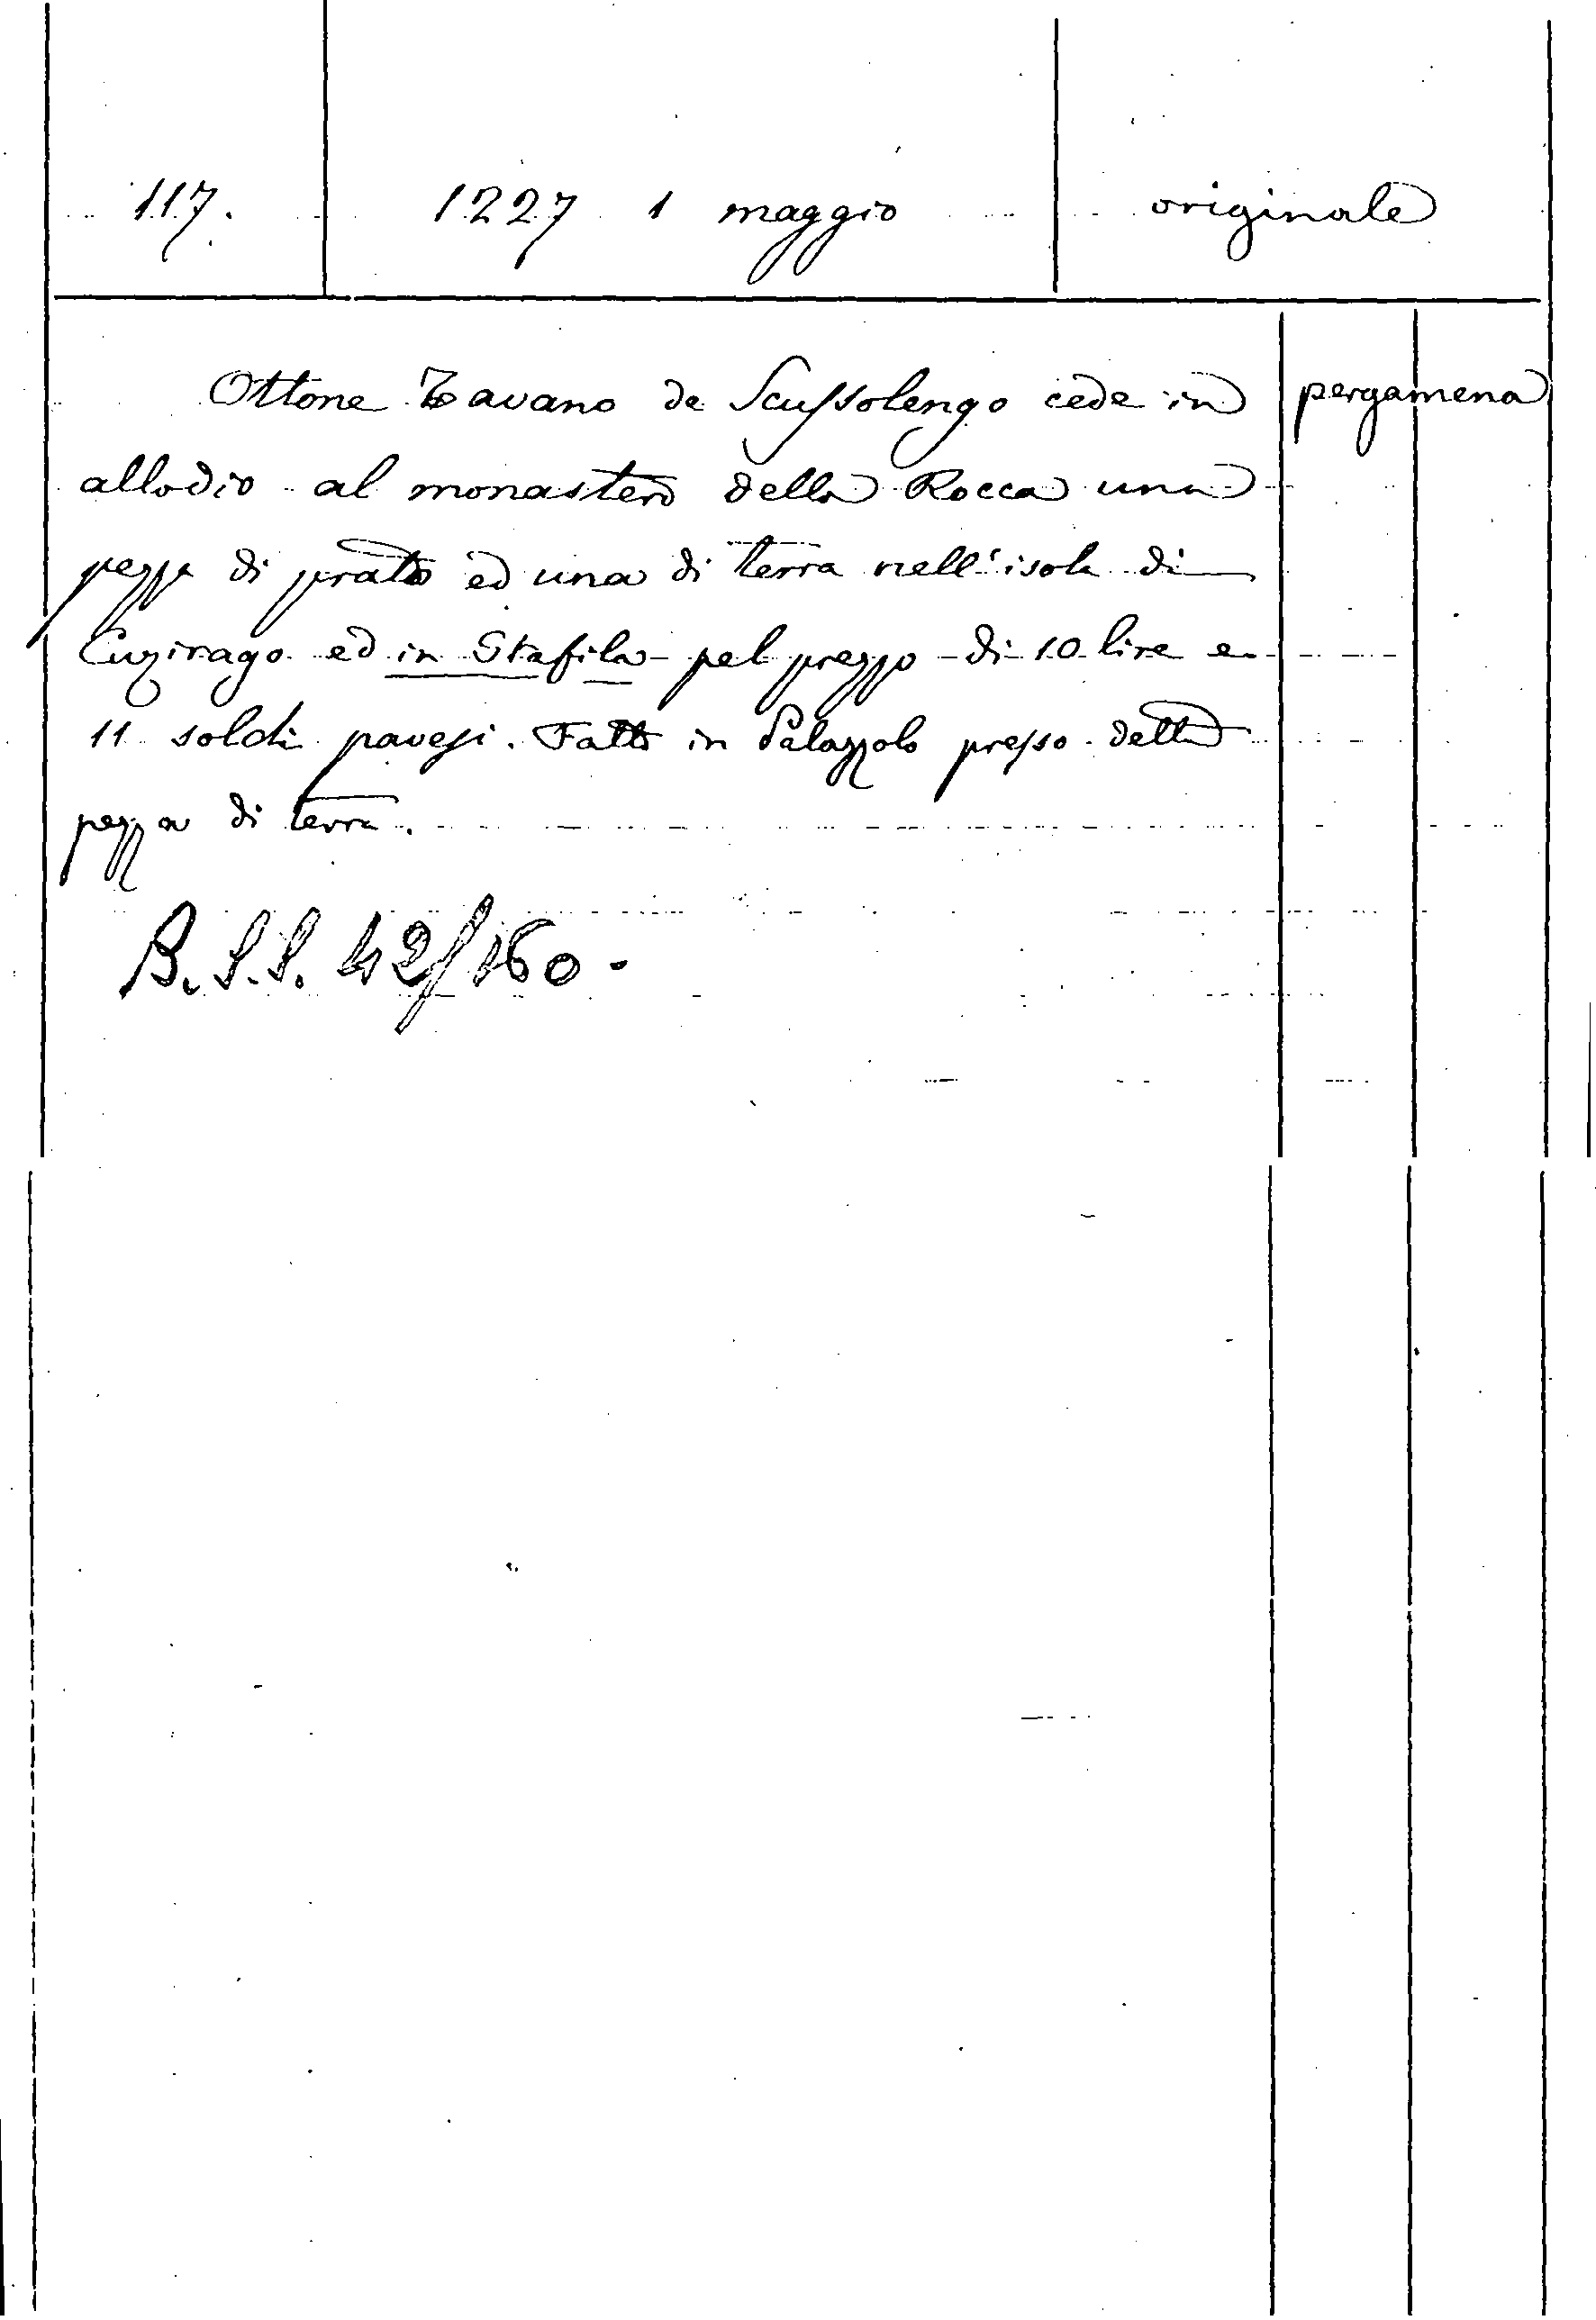 117. 1227 1 maggio originale
Ottone Tavano de Scussolengo cede in pergamena
allodio al monastero della Rocca una
pezza di prato ed una di terra nell'isola di
Cuzirago ed in Stafila pel prezzo di 10 lire e
11 soldi pavesi. Fatto in Palazzolo presso detta
pezza di terra.
B.S.S. 42/160.